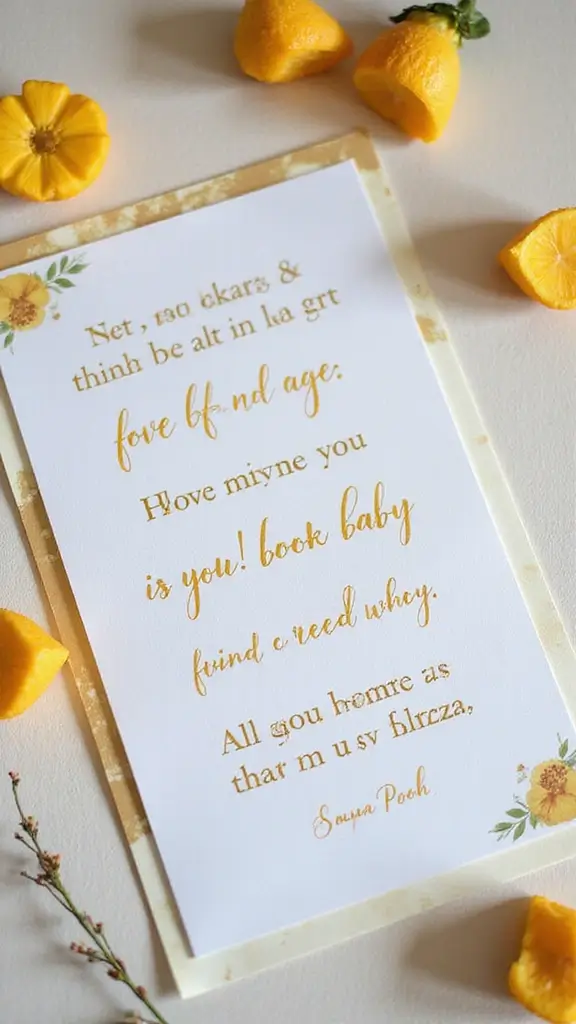 Net, rao ckars &
thinh be alt in ka grt
fove bf nd age:
Hove miyne you
is you! book baby
fvind c reed whcy.
All you homre as
thar m u sv blrcza,
Saupa Pooh